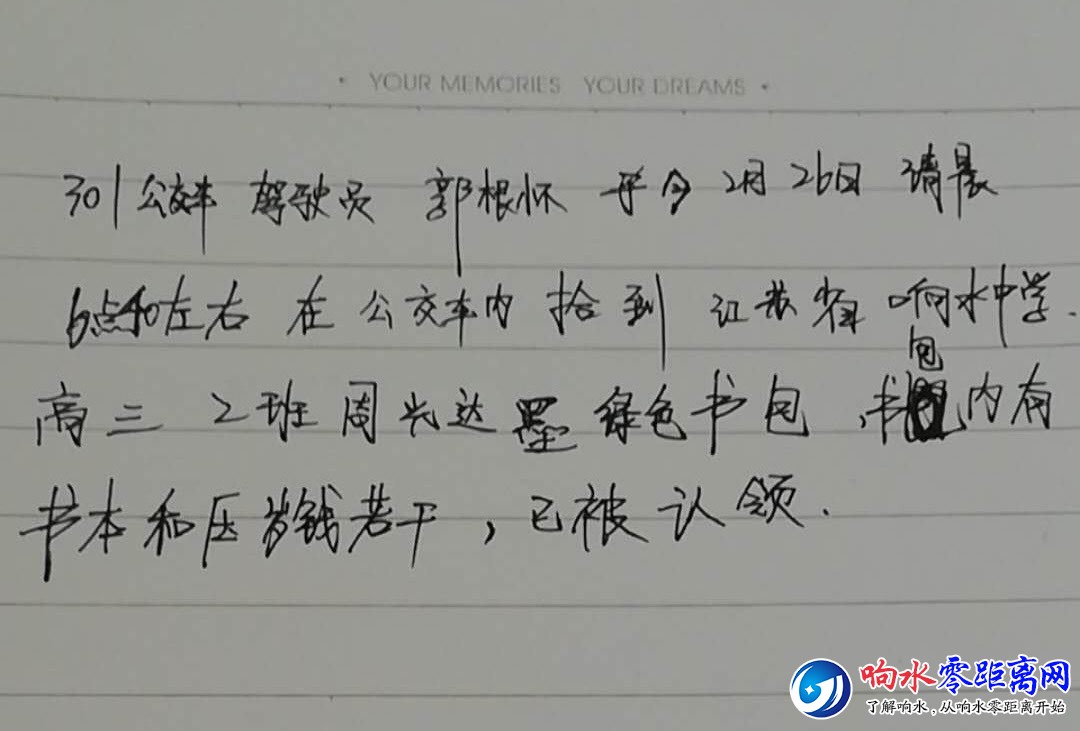 YOUR MEMORIES YOUR DREAMS
301公交车 驾驶员 郭根怀 于今 2月26日 请晨
6点40左右 在公交车内 拾到 江苏省响水中学.
包
高三 2班 周兴达 墨绿色书包,书内有
书本和压岁钱若干,已被认领.
响水零距离网
了解响水,从响水零距离开始